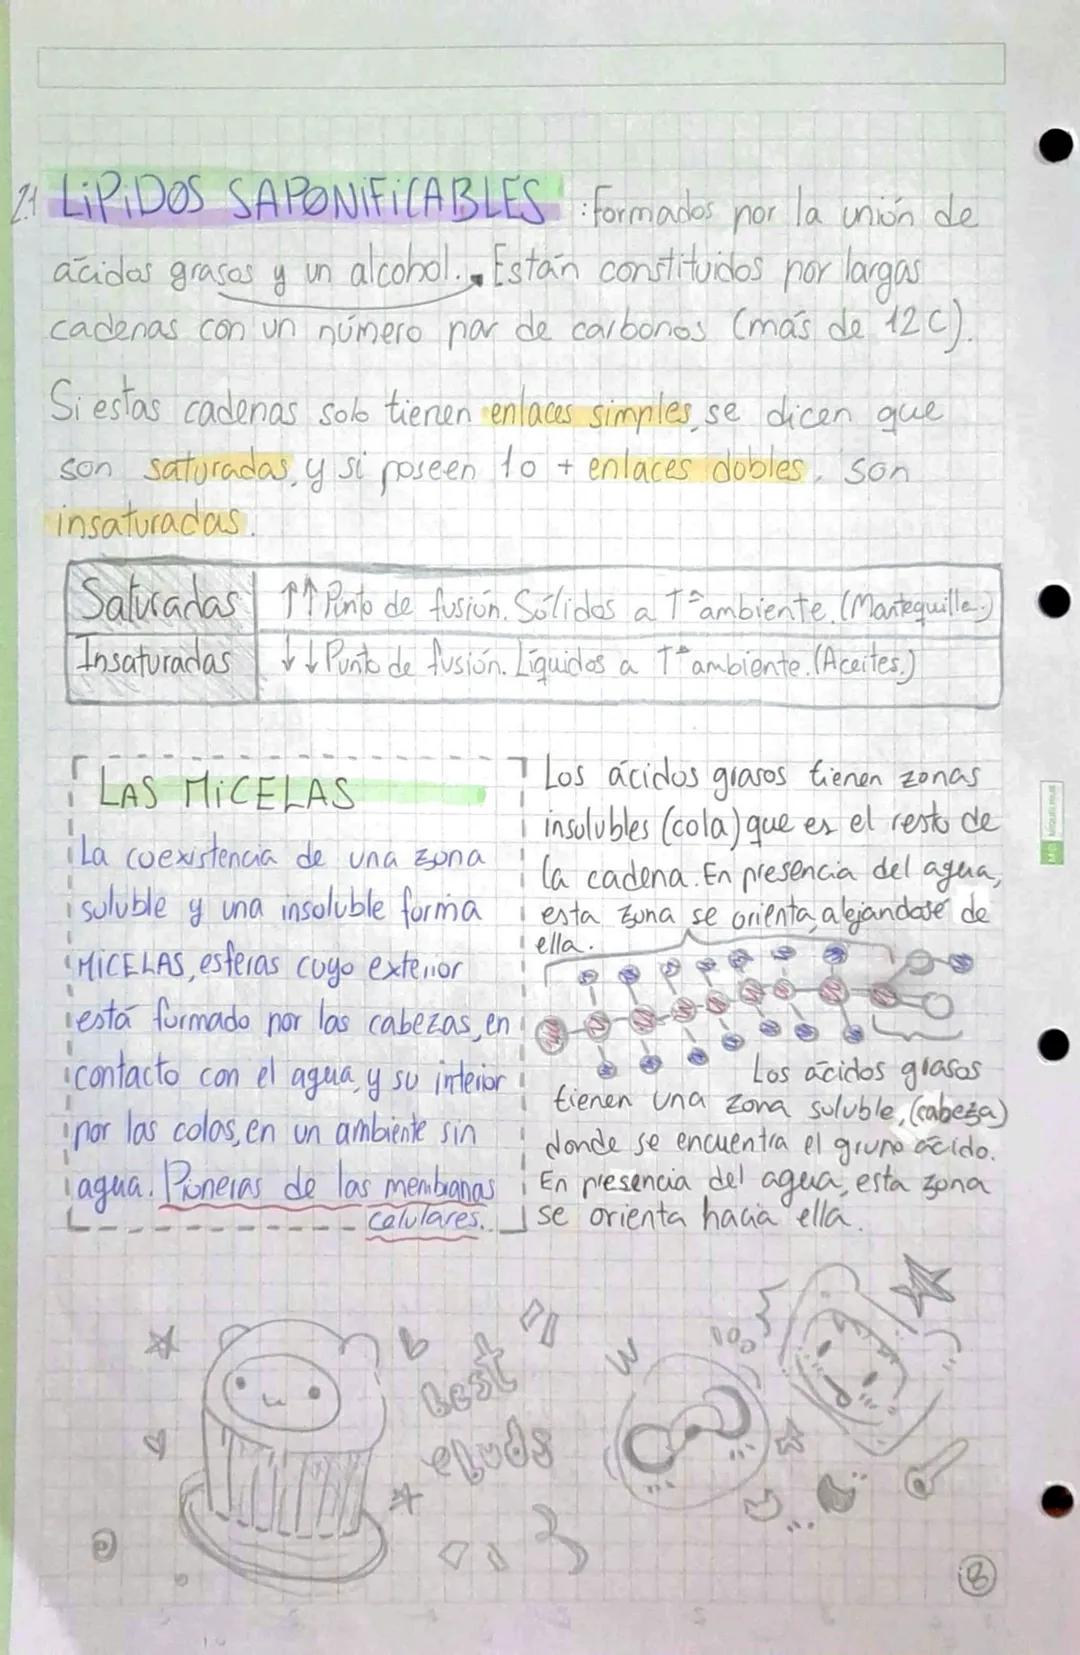 2.1 LÍPIDOS SAPONIFICABLES : formados por la unión de
ácidos grasos y un alcohol. Están constituidos por largas
cadenas con un número par de carbonos (más de 12C).
Si estas cadenas solo tienen enlaces simples, se dicen que
son saturadas, y si poseen 1 o + enlaces dobles, son
insaturadas.
Saturadas ↑↑ Punto de fusión. Sólidos a Tª ambiente. (Mantequilla.)
Insaturadas ↓↓ Punto de fusión. Líquidos a Tª ambiente. (Aceites.)
LAS MICELAS
La coexistencia de una zona
soluble y una insoluble forma
MICELAS, esferas cuyo exterior
está formado por las cabezas, en
contacto con el agua, y su interior
por las colas, en un ambiente sin
agua. Pioneras de las membranas
celulares.
Los ácidos grasos tienen zonas
insolubles (cola) que es el resto de
la cadena. En presencia del agua,
esta zona se orienta alejandose de
ella.
Los ácidos grasos
tienen una zona soluble, (cabeza)
donde se encuentra el grupo ácido.
En presencia del agua, esta zona
se orienta hacia ella.
Best
8